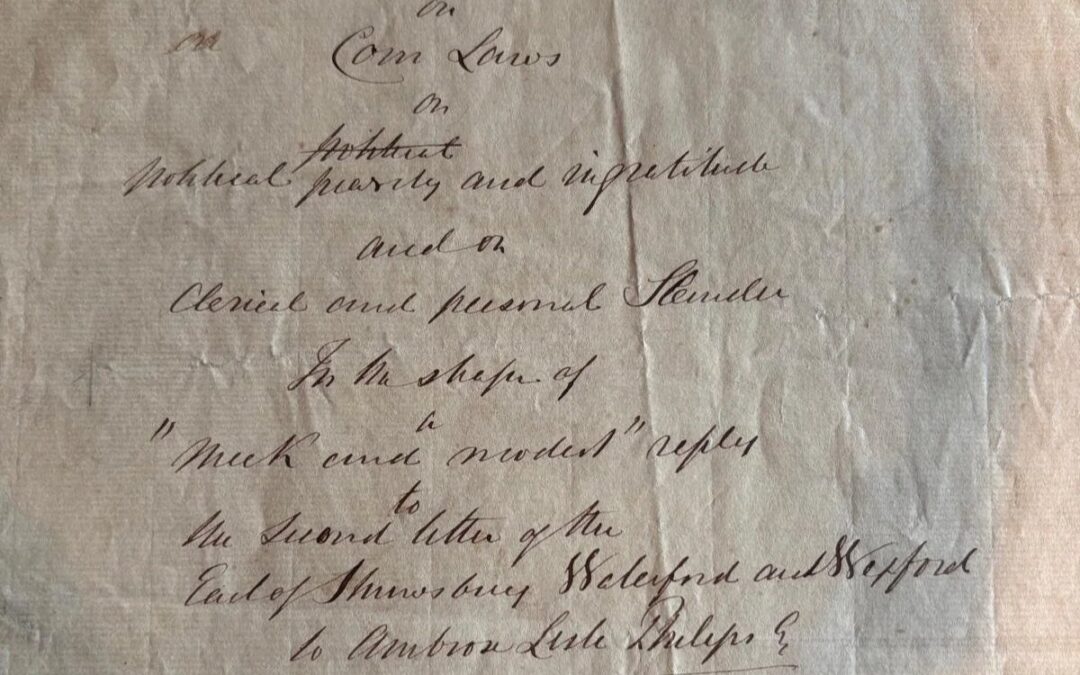 on
on
Corn Laws
on
political
political pravity and ingratitude
and on
Clerical and personal Slander
In the shape of
a
"Meek and modest" reply
to
the second letter of the
Earl of Shrewsbury Waterford and Wexford
to Ambrose Lisle Philipps E